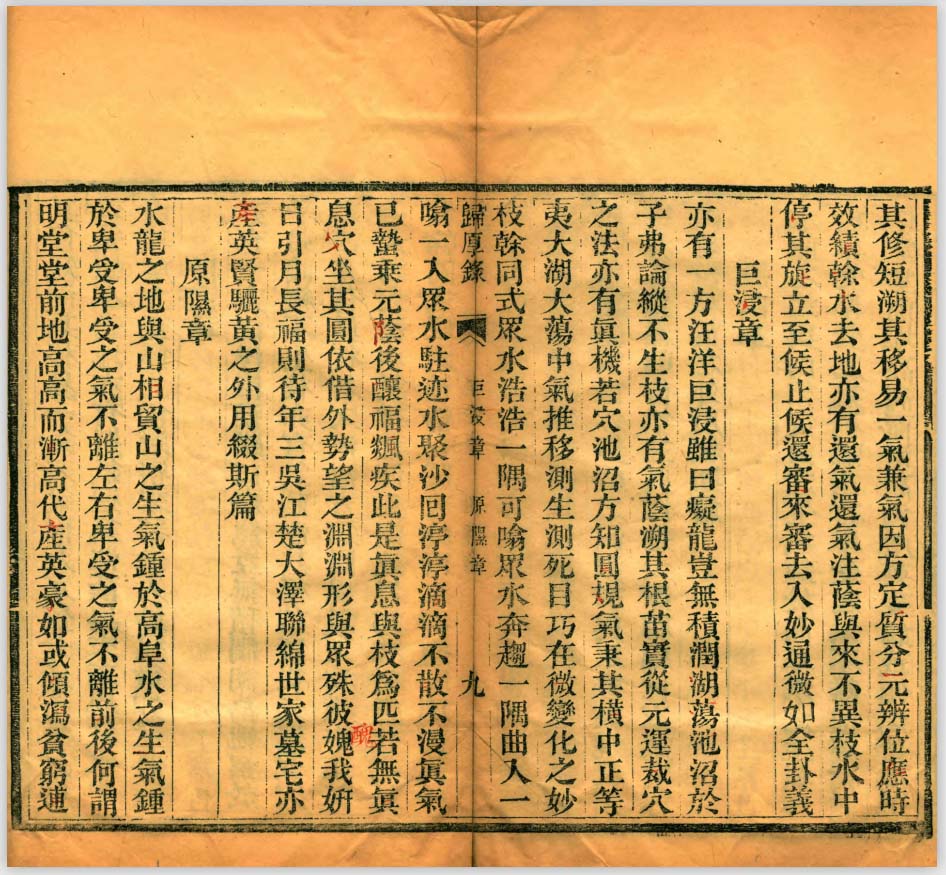 其修短溯其移易一氣兼氣因方定質分元辨位應時
效績榦水去地亦有還氣還氣注蔭與來不異枝水中
停其旋立至候止候還審來審去入妙通微如全卦義
巨浸章
亦有一方汪洋巨浸雖曰癡龍豈無積潤湖蕩池沼於
子弗論縱不生枝亦有氣蔭溯其根荄實從元運裁穴
之法亦有眞機若穴池沼方知圓規氣秉其橫中正等
夷大湖大蕩中氣推移測生測死目巧在微變化之妙
枝榦同式眾水浩浩一隅可噏眾水奔趨一隅曲入一
歸厚錄 巨浸章 原隰章 九
噏一入眾水駐迹水聚沙囘渟渟滴滴不散不漫眞氣
已蟄乘元蔭後釀福飊疾此是眞息與枝爲匹若無眞
息穴坐其圓依借外勢望之淵淵形與眾殊彼媿我姸
醜
日引月長福則待年三吳江楚大澤聯綿世家墓宅亦
產英賢驪黃之外用綴斯篇
原隰章
水龍之地與山相貿山之生氣鍾於高阜水之生氣鍾
於卑受卑受之氣不離左右卑受之氣不離前後何謂
明堂堂前地高高而漸高代產英豪如或傾瀉貧窮逋